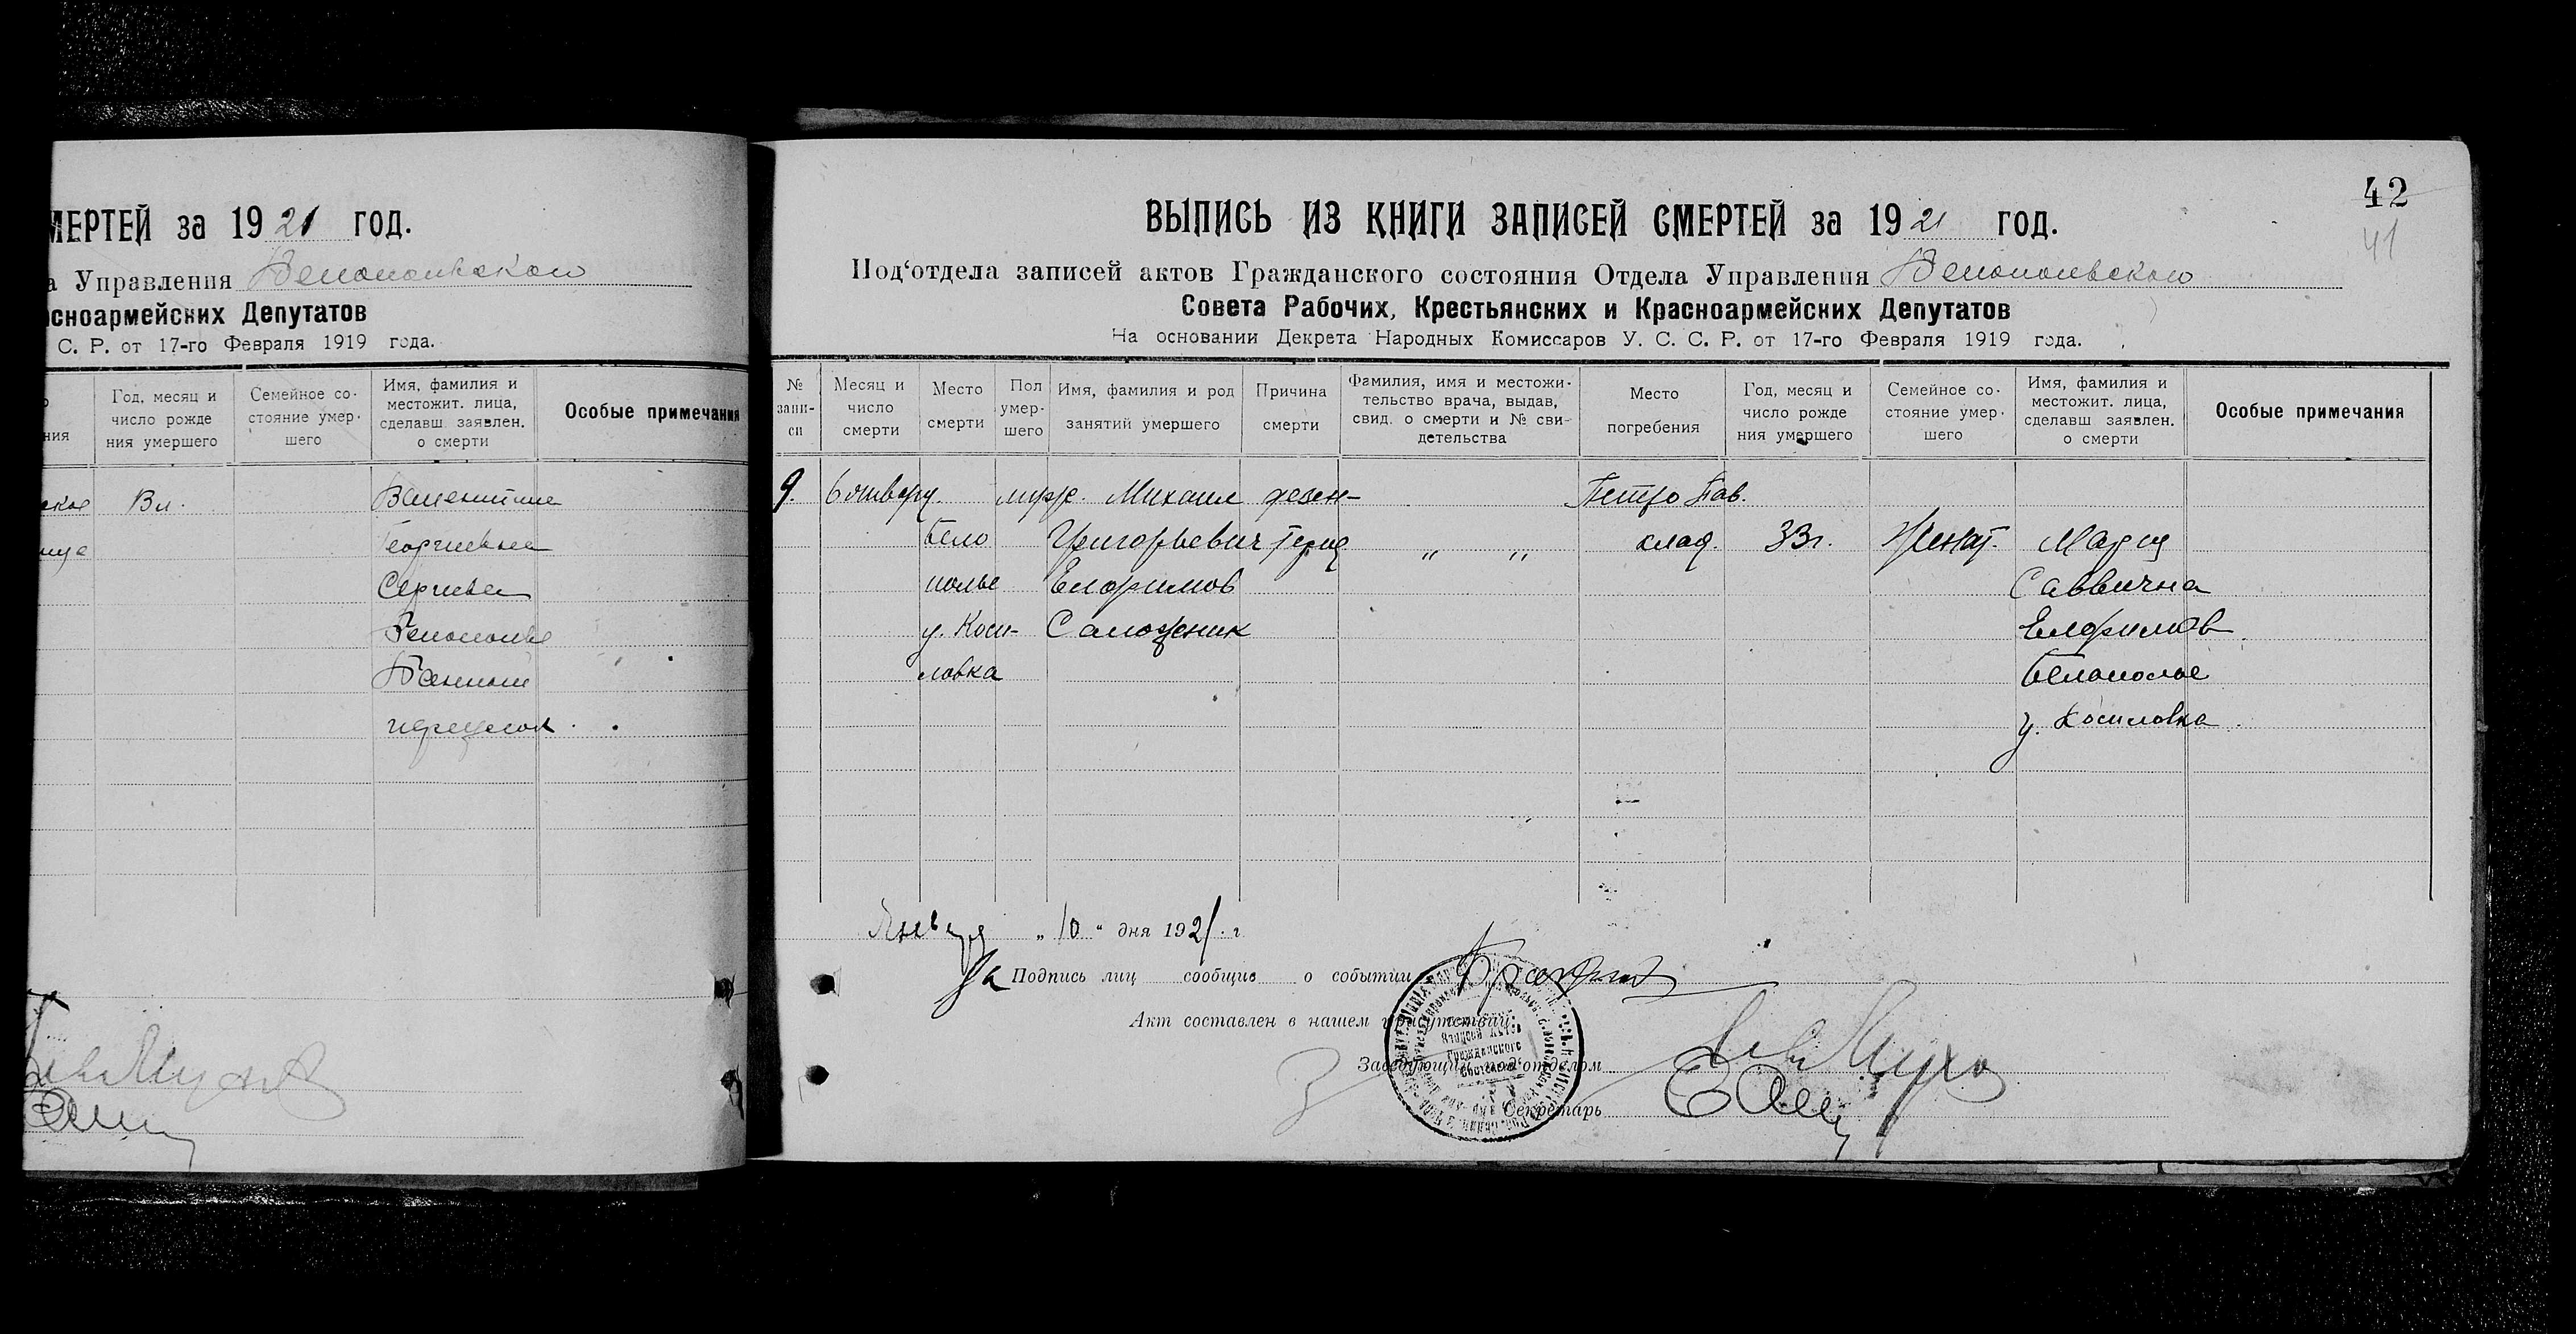 МЕРТЕЙ за 1921 год.
а Управления Белопольского
асноармейских Депутатов
С. Р. от 17-го Февраля 1919 года.
ния
Год, месяц и
число рожде
ния умершего
Семейное со-
стояние умер-
шего
Имя, фамилия и
местожит. лица,
сделавш. заявлен.
о смерти
Особые примечания
ское
Вл.
Валентина
Георгиевна
Сергиева
Белополье
42
41
ВЫПИСЬ ИЗ КНИГИ ЗАПИСЕЙ СМЕРТЕЙ за 1921 год.
Под‘отдела записей актов Гражданского состояния Отдела Управления Белопольского
Совета Рабочих, Крестьянских и Красноармейских Депутатов
На основании Декрета Народных Комиссаров У. С. С. Р. от 17-го Февраля 1919 года.
№
запи-
си
Месяц и
число
смерти
Место
смерти
Пол
умер-
шего
Имя, фамилия и род
занятий умершего
Причина
смерти
Фамилия, имя и местожи-
тельство врача, выдав,
свид. о смерти и № сви-
детельства
Место
погребения
Год, месяц и
число рожде
ния умершего
Семейное со-
стояние умер-
шего
Имя, фамилия и
местожит. лица,
сделавш заявлен.
о смерти
Особые примечания
9.
6 январу.
Бело
полье
у. Коси-
ловка
муж.
Михаил
Григорьевич
Елфимов
Сапожник
дезен-
терия
" "
Петро Пав.
клад.
33 г.
Женат.
Мария
Саввична
Елфимов
Белополье
у. Косиловка
Января „ 10 “ дня 1921. г
За Подпись лиц сообщив о событии
Акт составлен в нашем присутствии:
Заведующий под‘отделом
Секретарь